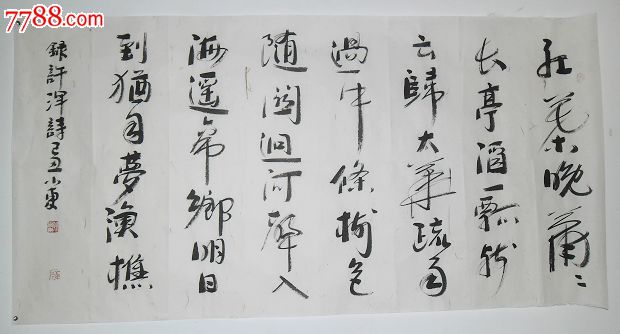 7788.com
红葉晚蕭〻
长亭酒一瓢残
云歸大華疏雨
過中條樹色
随關迴河聲入
海遥帝鄉明日
到猶自夢漁樵
録許渾詩己丑小